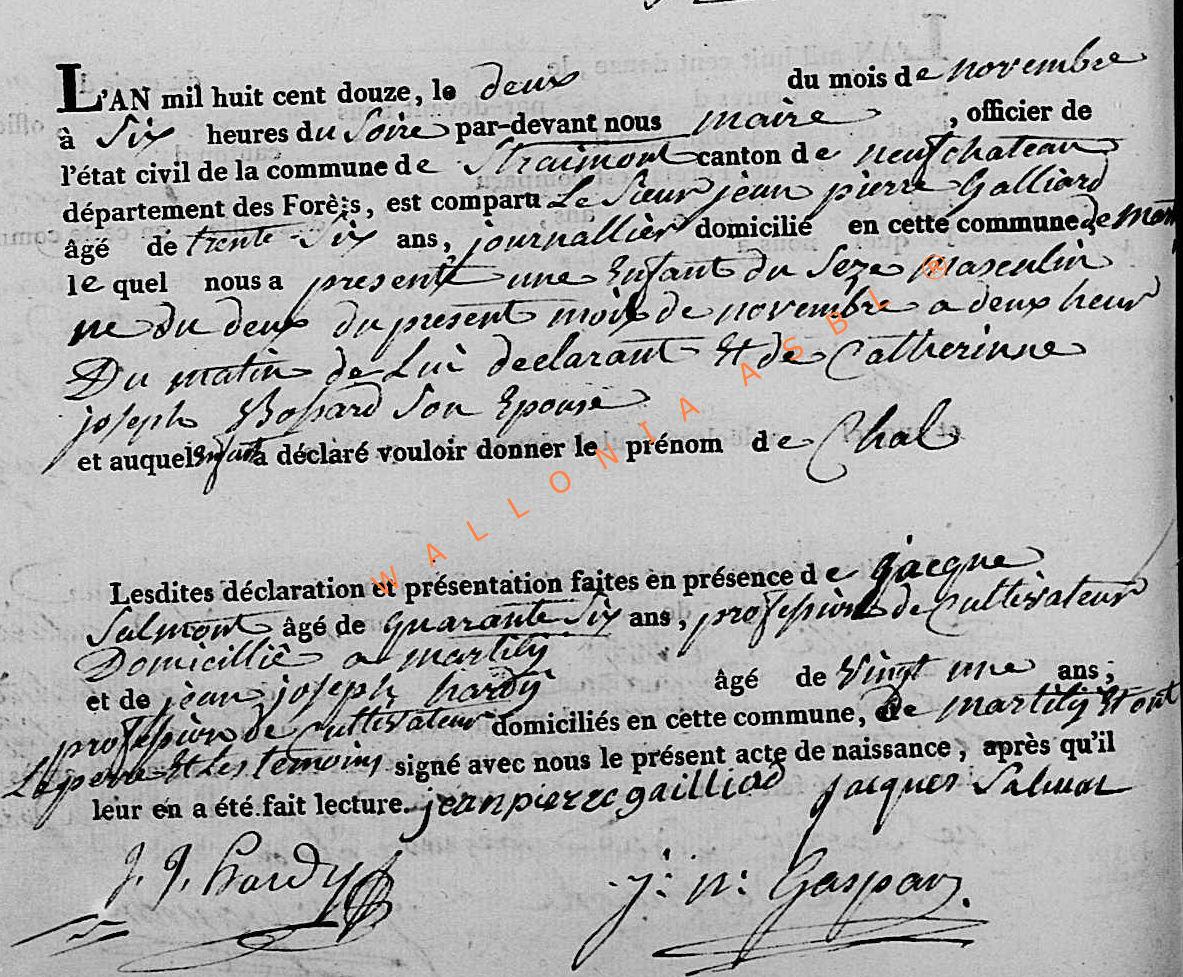 L'AN mil huit cent douze, le deux du mois de novembre
à Six heures du Soire par-devant nous maire , officier de
l'état civil de la commune de Straimont canton de neufchateau
département des Forêts, est comparu Le Sieur jean pierre Galliard
âgé de trente Six ans, journallier domicilié en cette commune de
le quel nous a presenté une Enfant du Sexe masculin
ne du deux du present mois de novembre a deux heur
Du matin de Lui declarant Et de Catherinne
joseph Bossard Son Epouse
et auquel Enfant a déclaré vouloir donner le prénom de Chal
Lesdites déclaration et présentation faites en présence de jacque
Salmont âgé de quarante Six ans, professions de Cultivateur
Domicillié a martily
et de jean joseph hardy âgé de Vingt une ans ;
professions de Cultivateur domiciliés en cette commune, de martily Et ont
Le pere Et Les temoins signé avec nous le présent acte de naissance, après qu'il
leur en a été fait lecture. jean pierre gailliad jacques Salmon
J. J. hardy j: n: Gaspar
WALLONIA ASBL ®